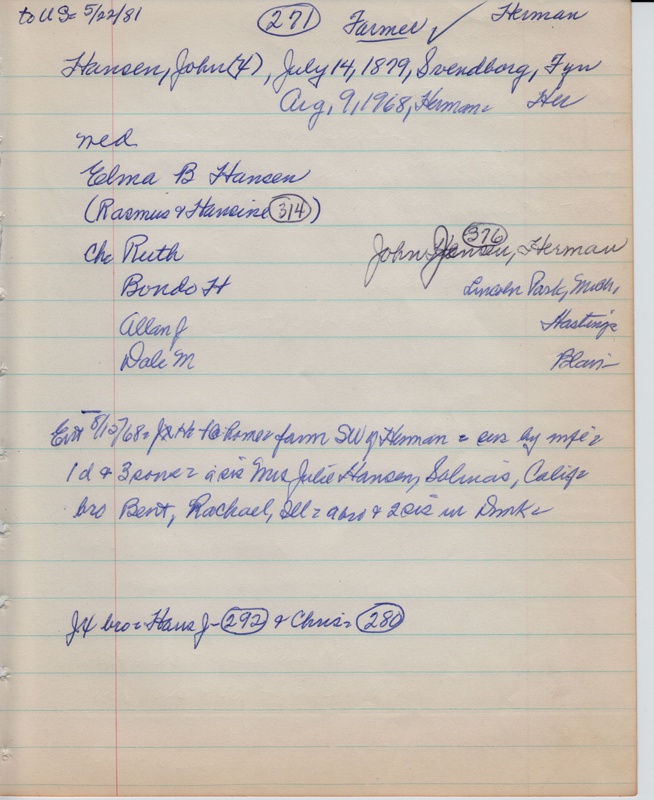 to US= 5/22/81 (271) Farmer ✓ Herman
Hansen, John (4), July 14, 1879, Svendborg, Fyn
Aug, 9, 1968, Herman= Her
med
Elma B Hansen
(Rasmus & Hansine (314))
Ch Ruth John Jensen, (376) Herman
Bondo H Lincoln Park, Mich,
Allan J Hastings
Dale M Blair
8/15/68= home farm SW of Herman = sur by wife=
1 d & 3 sons= a sis Mrs Julie Hansen, Salinas, Calif=
bro Bent, Rachael, Ill= a bro & 2 sis in Dmk=
J4 bro= Hans J- (292) & Chris= (280)